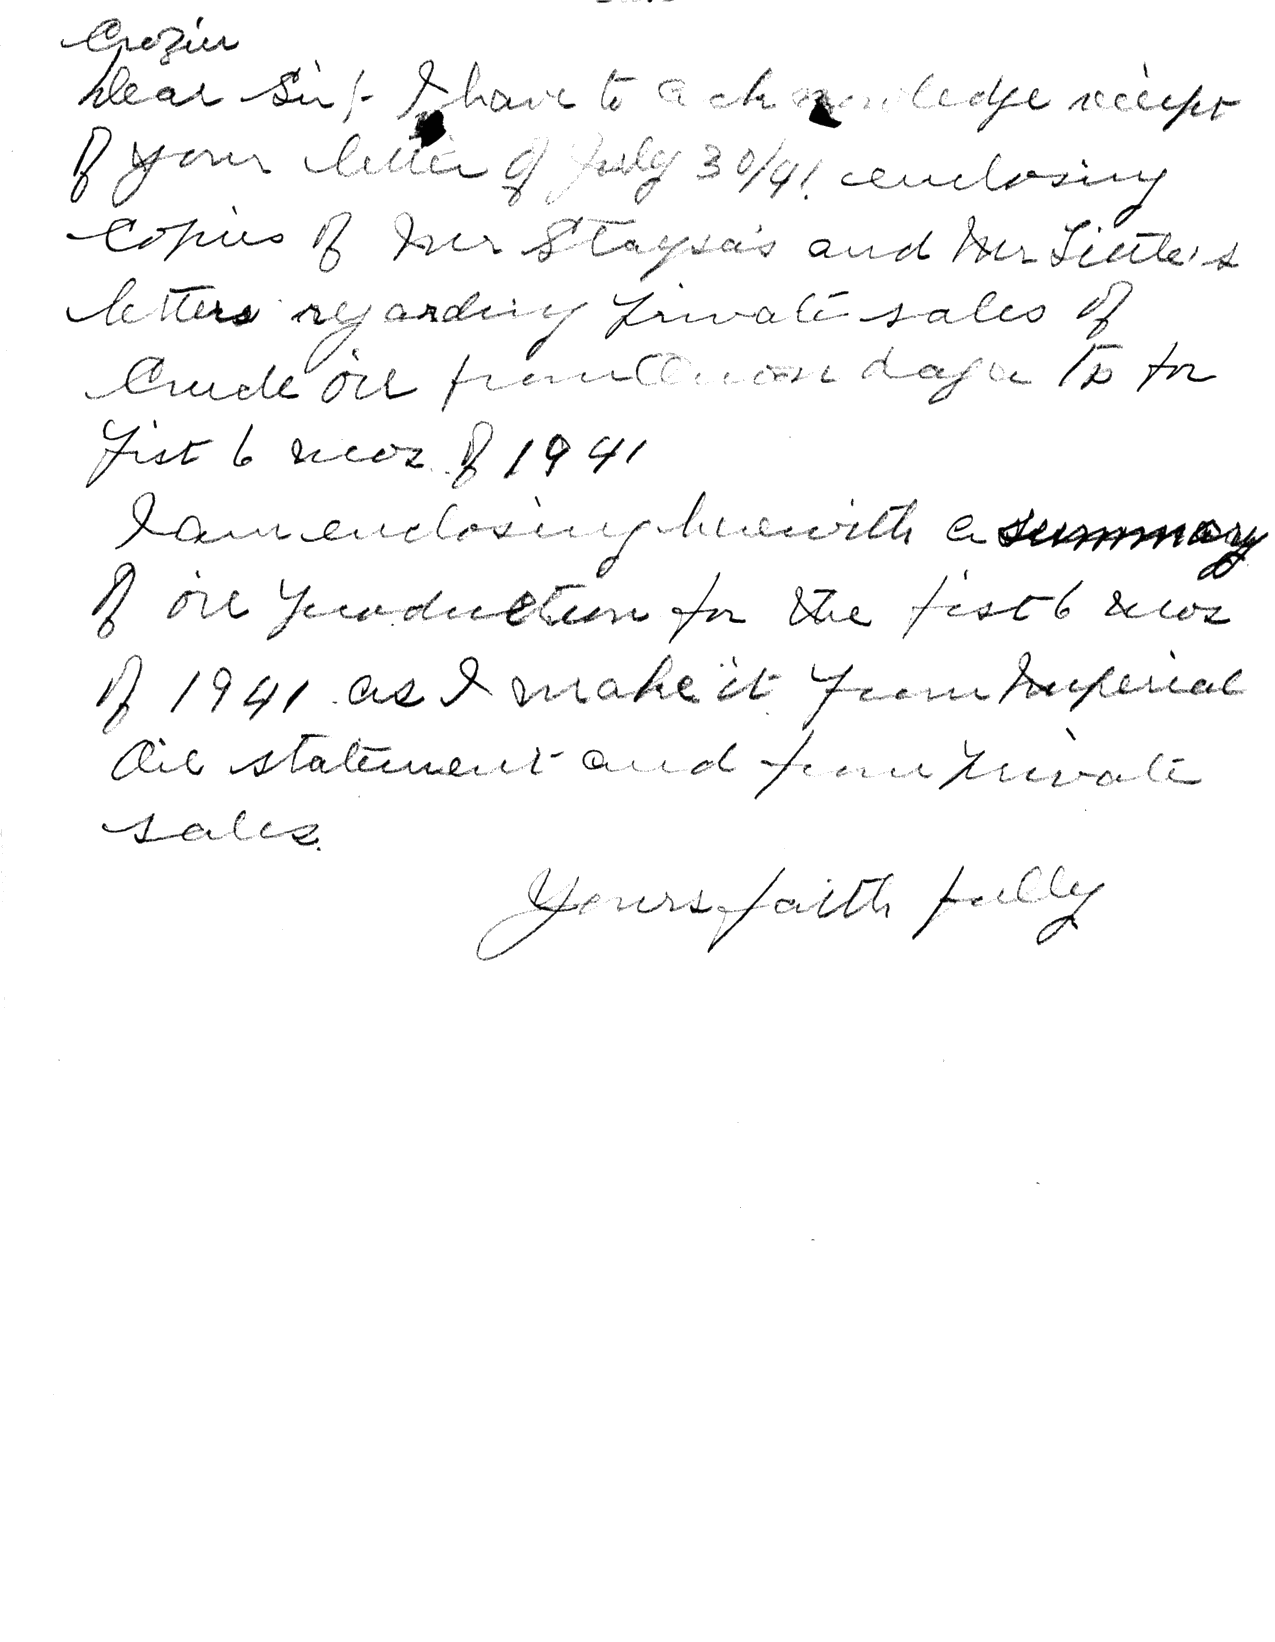 Crozier
Dear Sir/- I have to acknowledge reciept
of your letter of July 30/41. enclosing
Copies of Mr and Mr Little's
letters regarding private sales of
Crude oil from Onondaga Tp for
fist 6 mos. of 1941
I am enclosing herewith a summary
of oil production for the fist 6 mos
of 1941 as I make it from Imperial
Oil statement and from private
sales.
Yours faithfully